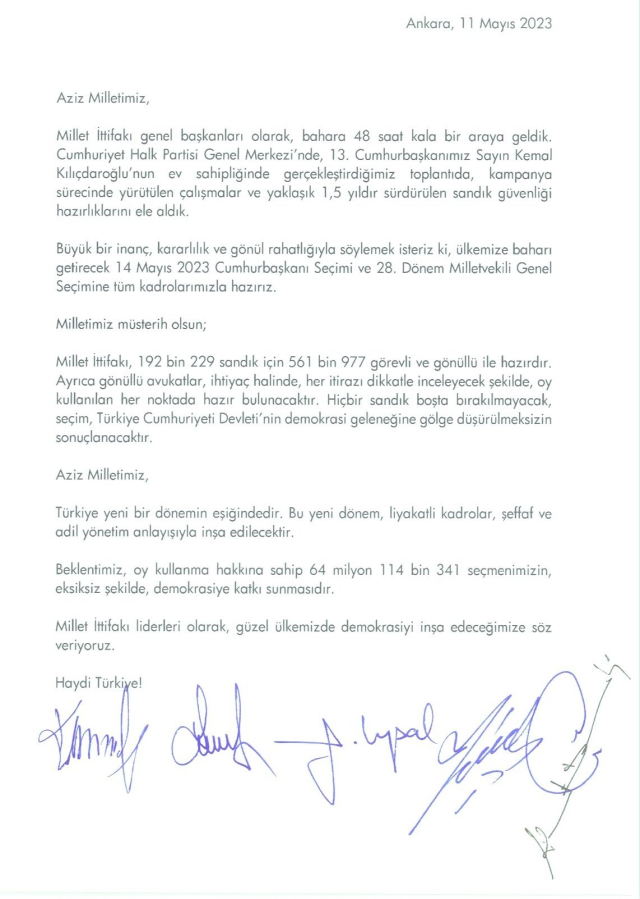 Ankara, 11 Mayıs 2023
Aziz Milletimiz,
Millet İttifakı genel başkanları olarak, bahara 48 saat kala bir araya geldik.
Cumhuriyet Halk Partisi Genel Merkezi’nde, 13. Cumhurbaşkanımız Sayın Kemal
Kılıçdaroğlu’nun ev sahipliğinde gerçekleştirdiğimiz toplantıda, kampanya
sürecinde yürütülen çalışmalar ve yaklaşık 1,5 yıldır sürdürülen sandık güvenliği
hazırlıklarını ele aldık.
Büyük bir inanç, kararlılık ve gönül rahatlığıyla söylemek isteriz ki, ülkemize baharı
getirecek 14 Mayıs 2023 Cumhurbaşkanı Seçimi ve 28. Dönem Milletvekili Genel
Seçimine tüm kadrolarımızla hazırız.
Milletimiz müsterih olsun;
Millet İttifakı, 192 bin 229 sandık için 561 bin 977 görevli ve gönüllü ile hazırdır.
Ayrıca gönüllü avukatlar, ihtiyaç halinde, her itirazı dikkatle inceleyecek şekilde, oy
kullanılan her noktada hazır bulunacaktır. Hiçbir sandık boşta bırakılmayacak,
seçim, Türkiye Cumhuriyeti Devleti’nin demokrasi geleneğine gölge düşürülmeksizin
sonuçlanacaktır.
Aziz Milletimiz,
Türkiye yeni bir dönemin eşiğindedir. Bu yeni dönem, liyakatli kadrolar, şeffaf ve
adil yönetim anlayışıyla inşa edilecektir.
Beklentimiz, oy kullanma hakkına sahip 64 milyon 114 bin 341 seçmenimizin,
eksiksiz şekilde, demokrasiye katkı sunmasıdır.
Millet İttifakı liderleri olarak, güzel ülkemizde demokrasiyi inşa edeceğimize söz
veriyoruz.
Haydi Türkiye!